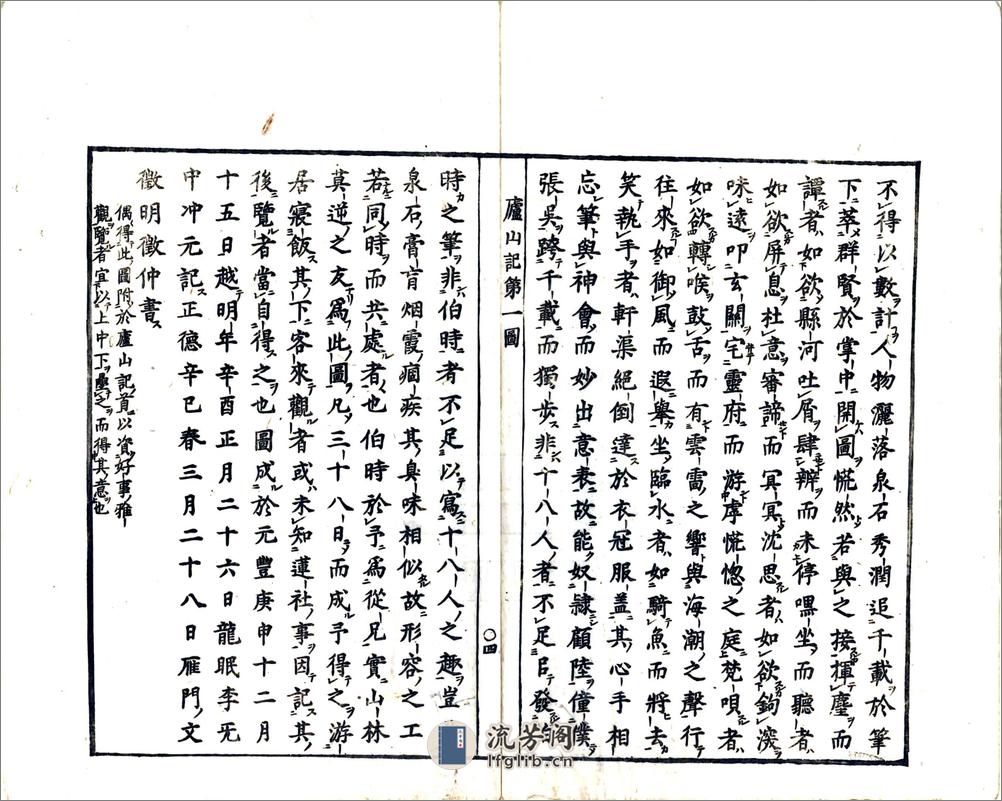 不得以數計人物灑落泉石秀潤追千載於筆
下萃群賢於掌中開圖慌然若與之接揮麈而
譚者如欲縣河吐屑肆辨而未停嘿坐而聽者
如欲屏息杜意審諦而冥冥沈思者如欲鉤深
味遠叩玄關宅靈府而游虖慌惚之庭梵唄者
如欲轉喉鼓舌而有雲雷之響與海潮之聲行
往來如御風而遐舉坐臨水者如騎魚而將去
笑執手者軒渠絕倒達於衣冠服盖其心手相
忘筆與神會而妙出意表故能奴隷顧陸僮僕
張吳跨千載而獨步非十八人者不足㠯發
廬山記第一圖
〇四
時之筆非伯時者不足以寫十八人之趣豈
泉石膏肓烟霞痼疾其臭味相似故形容之工
若同時而共處者也伯時於予為從兄實山林
莫逆之友爲此圖凡三十八日而成予得之游
居寢飯其下客來觀者或未知蓮社事因記其
後覽者當自得之也圖成於元豐庚申十二月
十五日越明年辛酉正月二十六日龍眠李旡
中冲元記正德辛巳春三月二十八日雁門文
徵明徵仲書
偶得此圖附於廬山記首以資好事雅
觀覽者宜以上中下疊之而得其意也
流芳阁
lfglib.cn